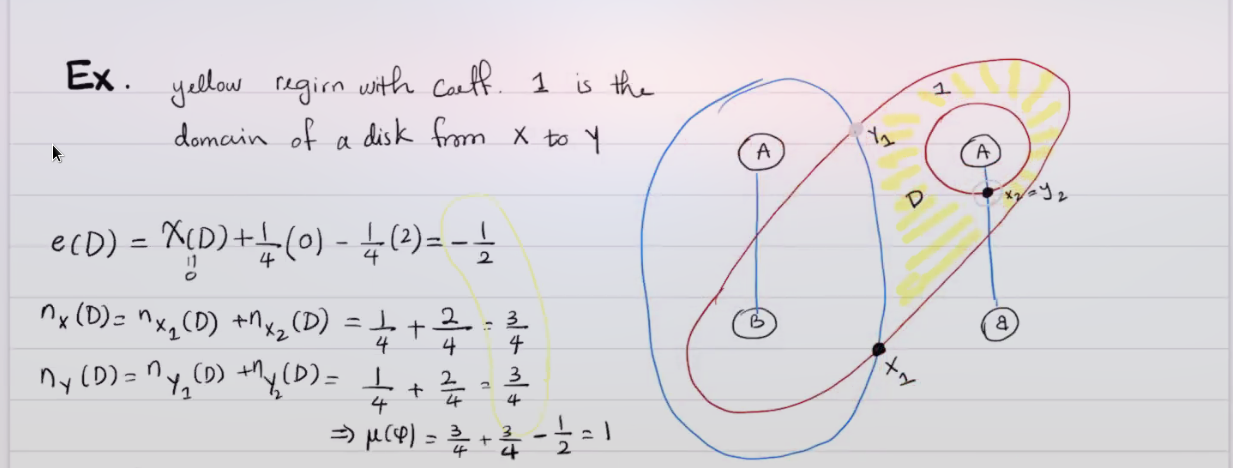 Ex. yellow region with coeff. 1 is the
domain of a disk from X to Y
e(D) = χ(D) + 1/4 (0) - 1/4 (2) = - 1/2
"
0
n_x (D) = n_{x_1} (D) + n_{x_2} (D) = 1/4 + 2/4 = 3/4
n_y (D) = n_{y_1} (D) + n_{y_2} (D) = 1/4 + 2/4 = 3/4
⇒ μ(φ) = 3/4 + 3/4 - 1/2 = 1
1
A
Y_1
A
D
x_2 = y_2
B
B
X_1